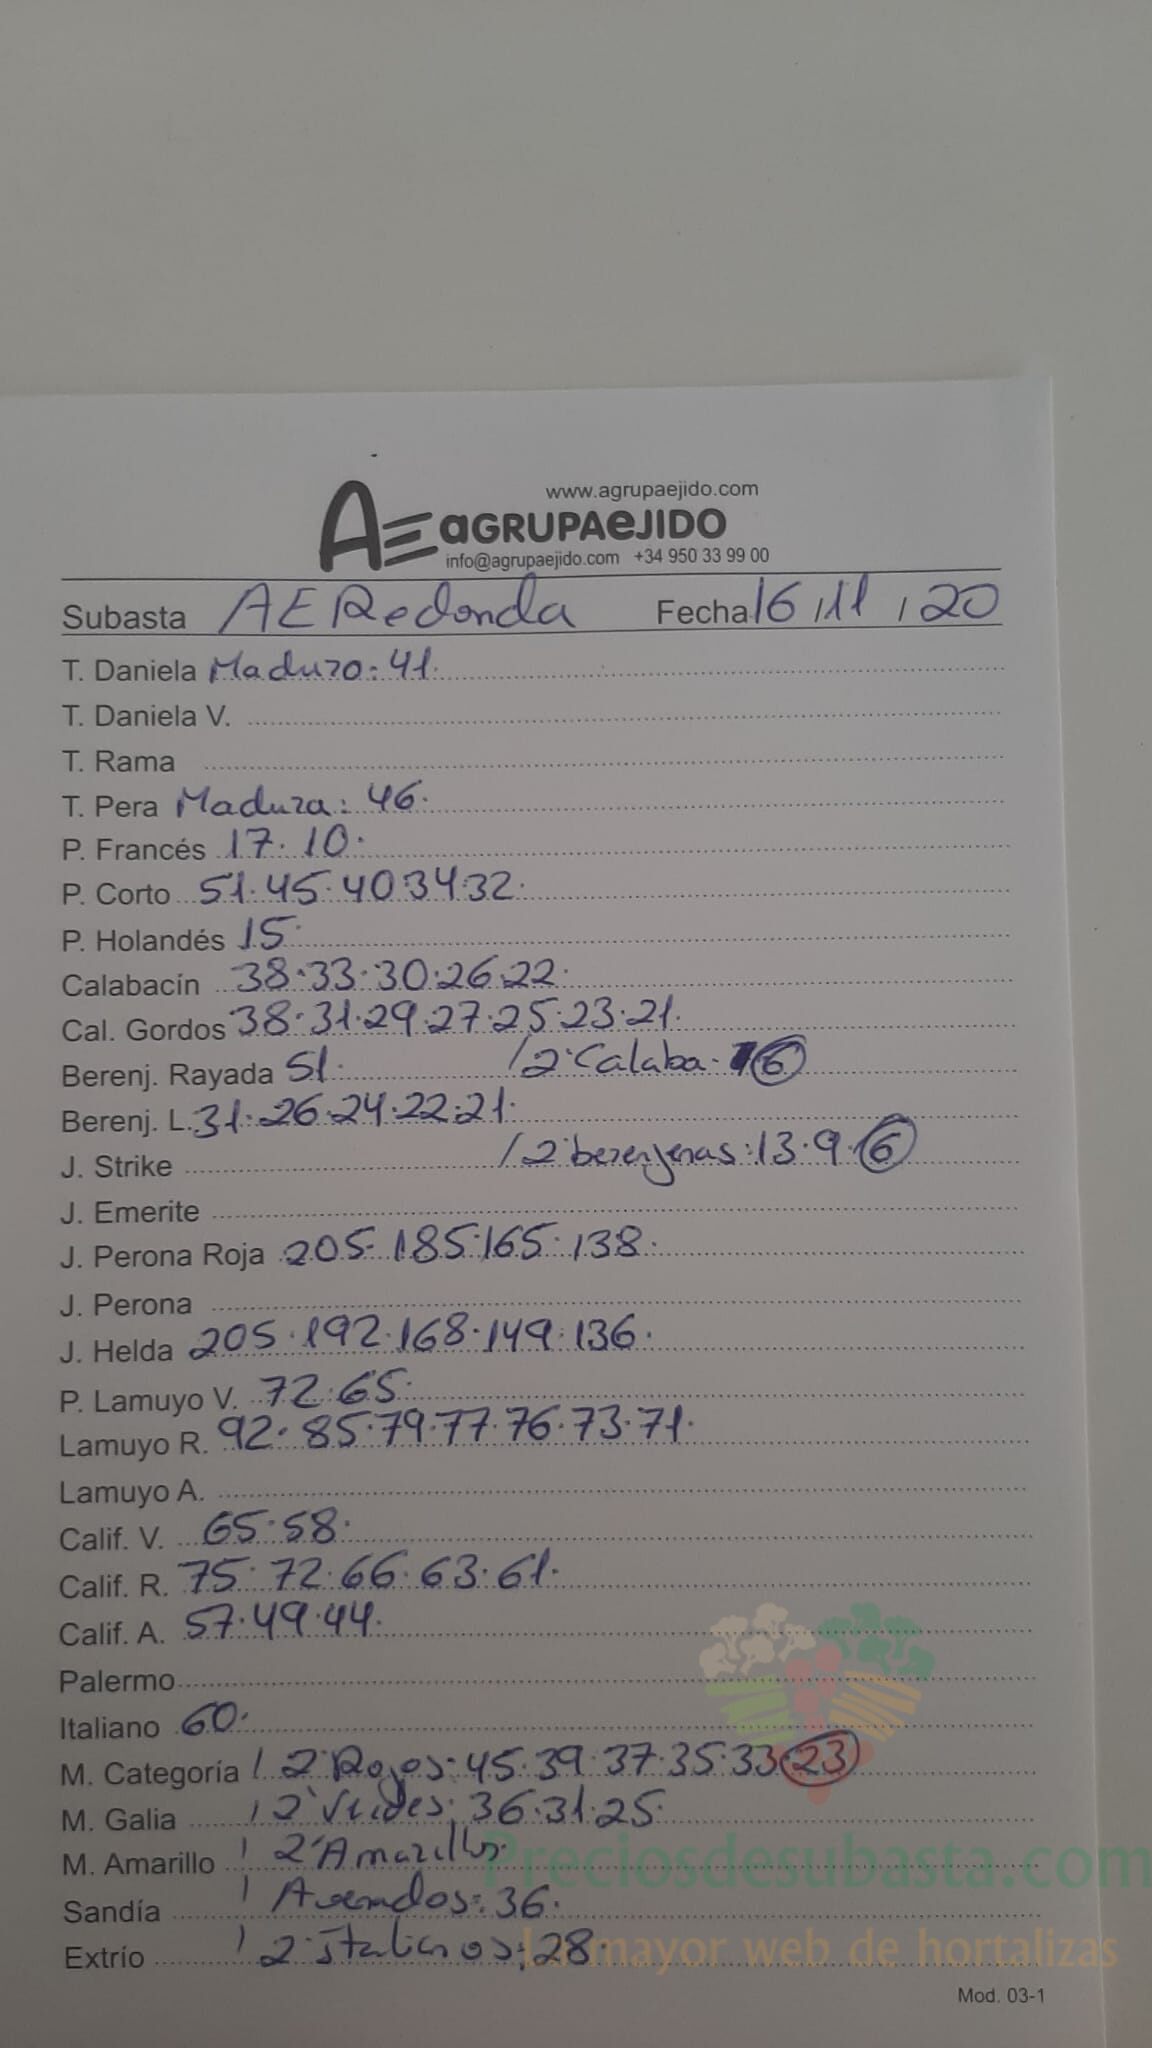 www.agrupaejido.com
AE aGRUPAeJIDO
info@agrupaejido.com +34 950 33 99 00
Subasta AE Redonda Fecha 16/11/20
T. Daniela Maduro: 41.
T. Daniela V.
T. Rama
T. Pera Madura: 46.
P. Francés 17. 10.
P. Corto 51. 45. 40. 34. 32.
P. Holandés 15.
Calabacín 38. 33. 30. 26. 22.
Cal. Gordos 38. 31. 29. 27. 25. 23. 21.
Berenj. Rayada 51. / 2ª Calaba. 6
Berenj. L. 31. 26. 24. 22. 21.
J. Strike / 2ª berenjenas: 13. 9. 6
J. Emerite
J. Perona Roja 205. 185. 165. 138.
J. Perona
J. Helda 205. 192. 168. 149. 136.
P. Lamuyo V. 72. 65.
Lamuyo R. 92. 85. 79. 77. 76. 73. 71.
Lamuyo A.
Calif. V. 65. 58.
Calif. R. 75. 72. 66. 63. 61.
Calif. A. 57. 49. 44.
Palermo
Italiano 60.
M. Categoría / 2ª Rojos: 45. 39. 37. 35. 33. 23
M. Galia / 2ª Verdes: 36. 31. 25.
M. Amarillo / 2ª Amarillos.
Sandía / Asurcados: 36.
Extrío / 2ª Italianos: 28.
Preciosdesubasta.com
La mayor web de hortalizas
Mod. 03-1